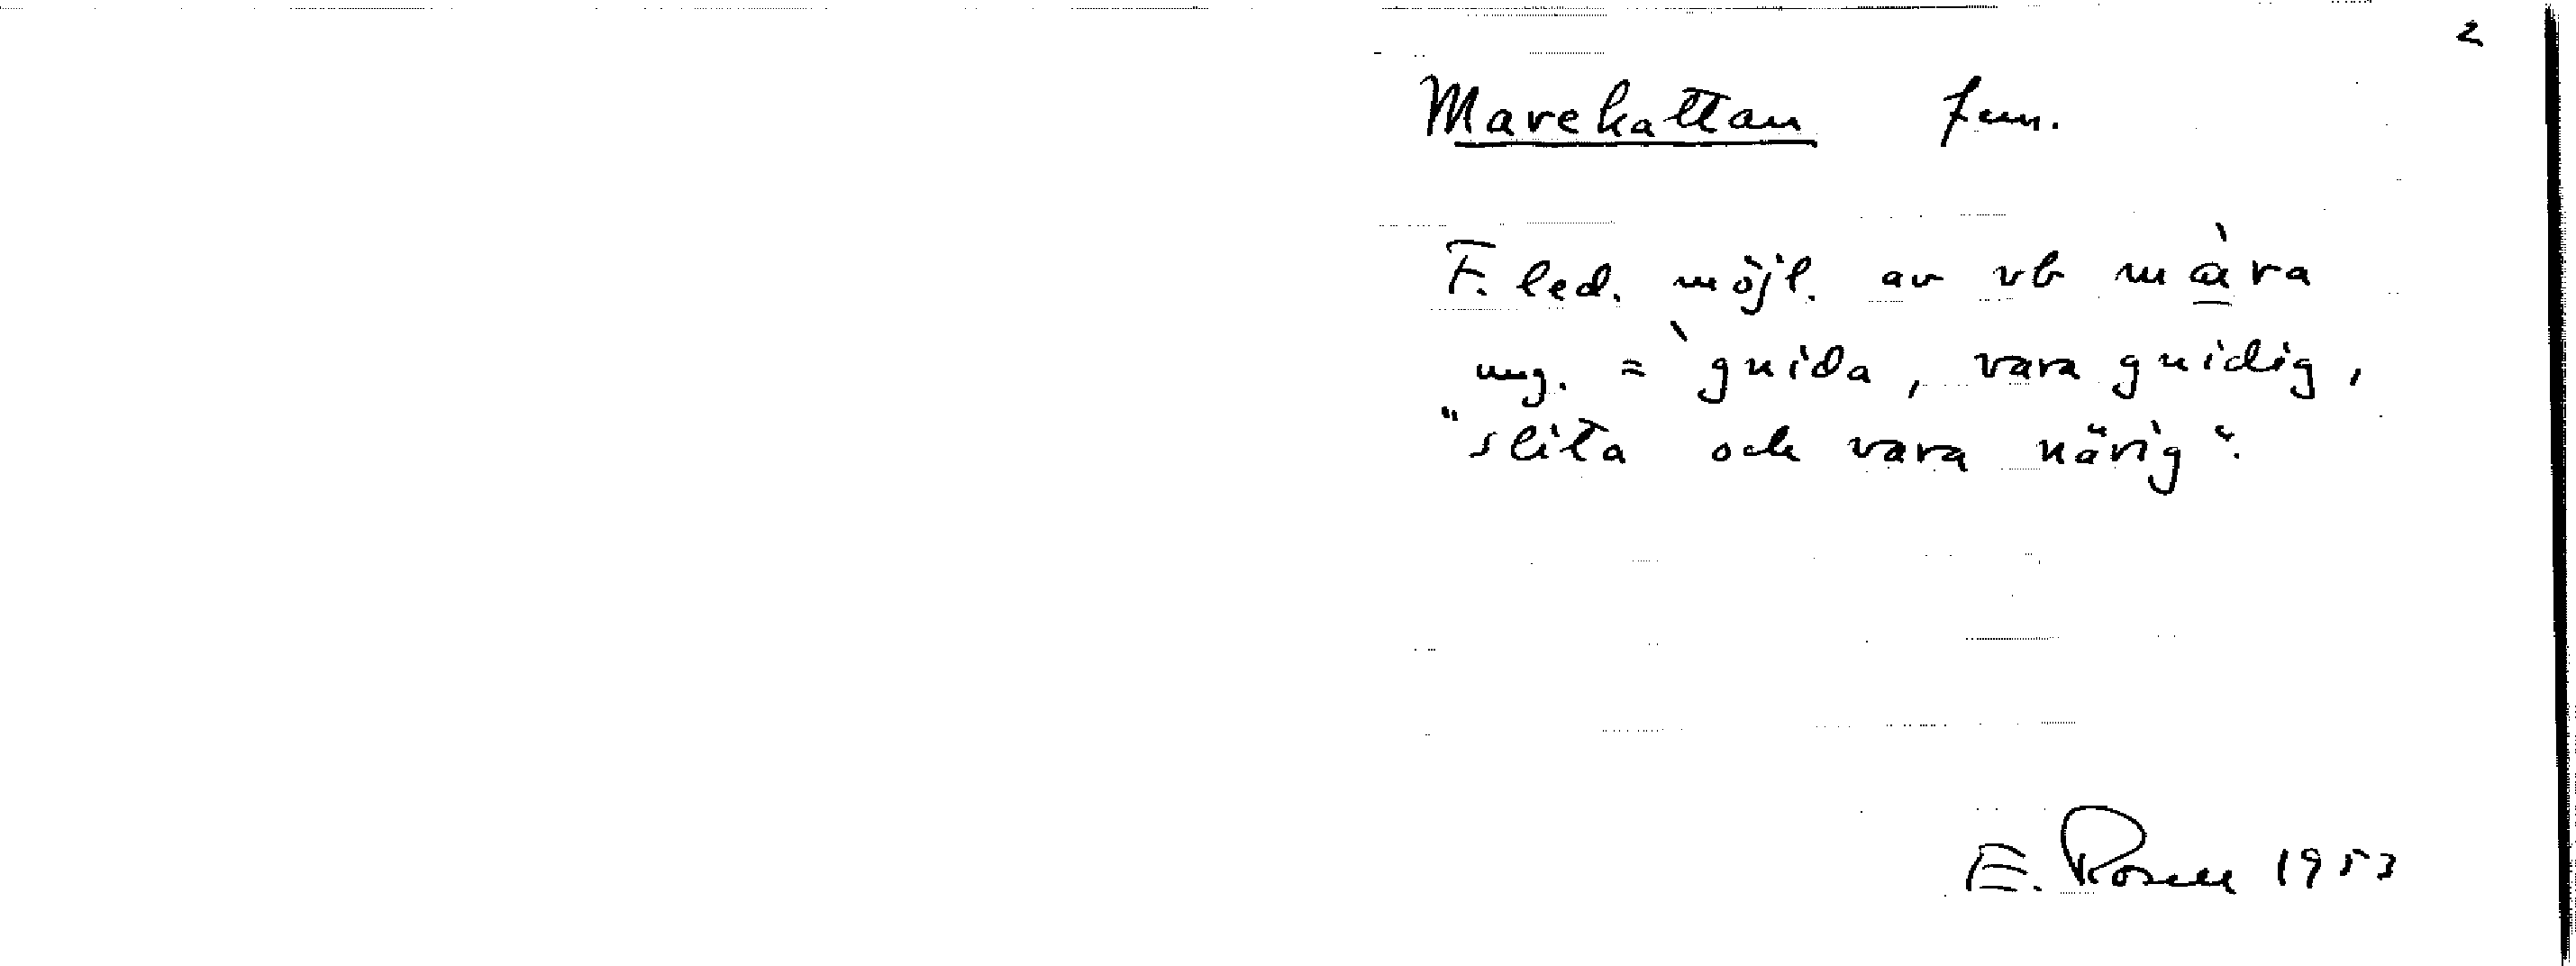 2
Marekattan fem.
F. led. möjl. av vb màra
ung. = `gnida, vara gnidig,
"slita och vara närig".
E. Rosell 1953